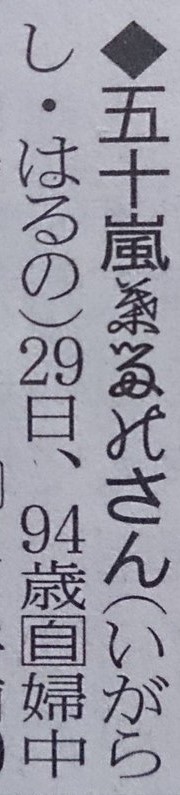 ◆五十嵐さん(いがら
し・はるの)29日、94歳自婦中